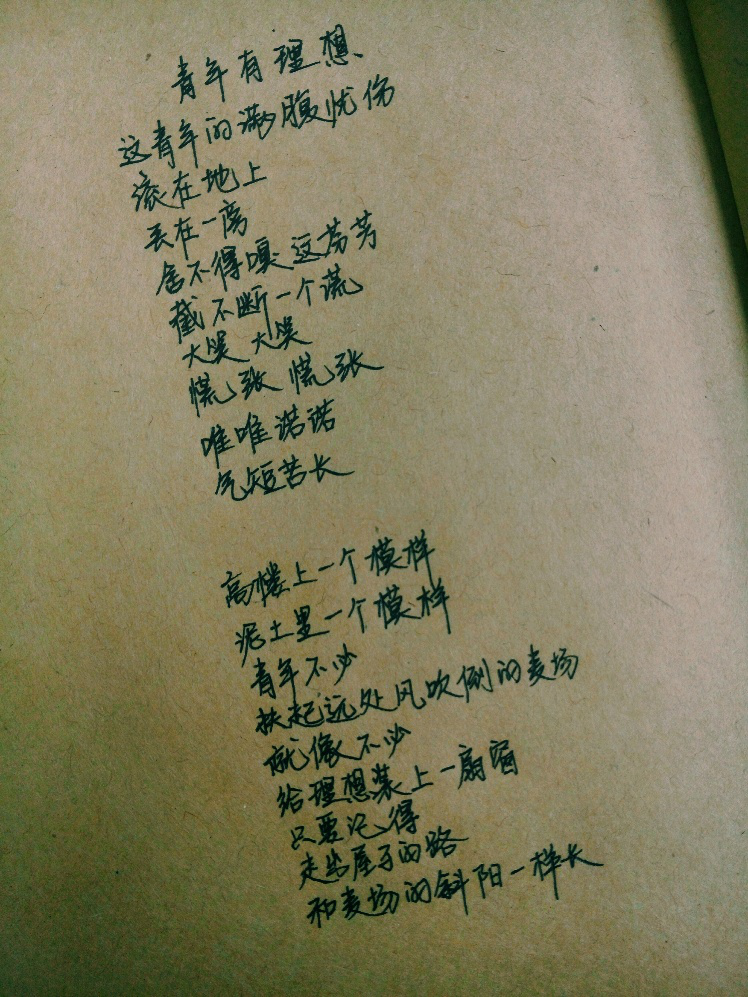 青年有理想
这青年的满腹忧伤
滚在地上
丢在一旁
舍不得嗅这芬芳
截不断一个谎
大哭 大哭
慌张 慌张
唯唯诺诺
气短苦长
高楼上一个模样
泥土里一个模样
青年不必
扶起远处风吹倒的麦场
就像不必
给理想装上一扇窗
只要记得
走出屋子的路
和麦场的斜阳一样长